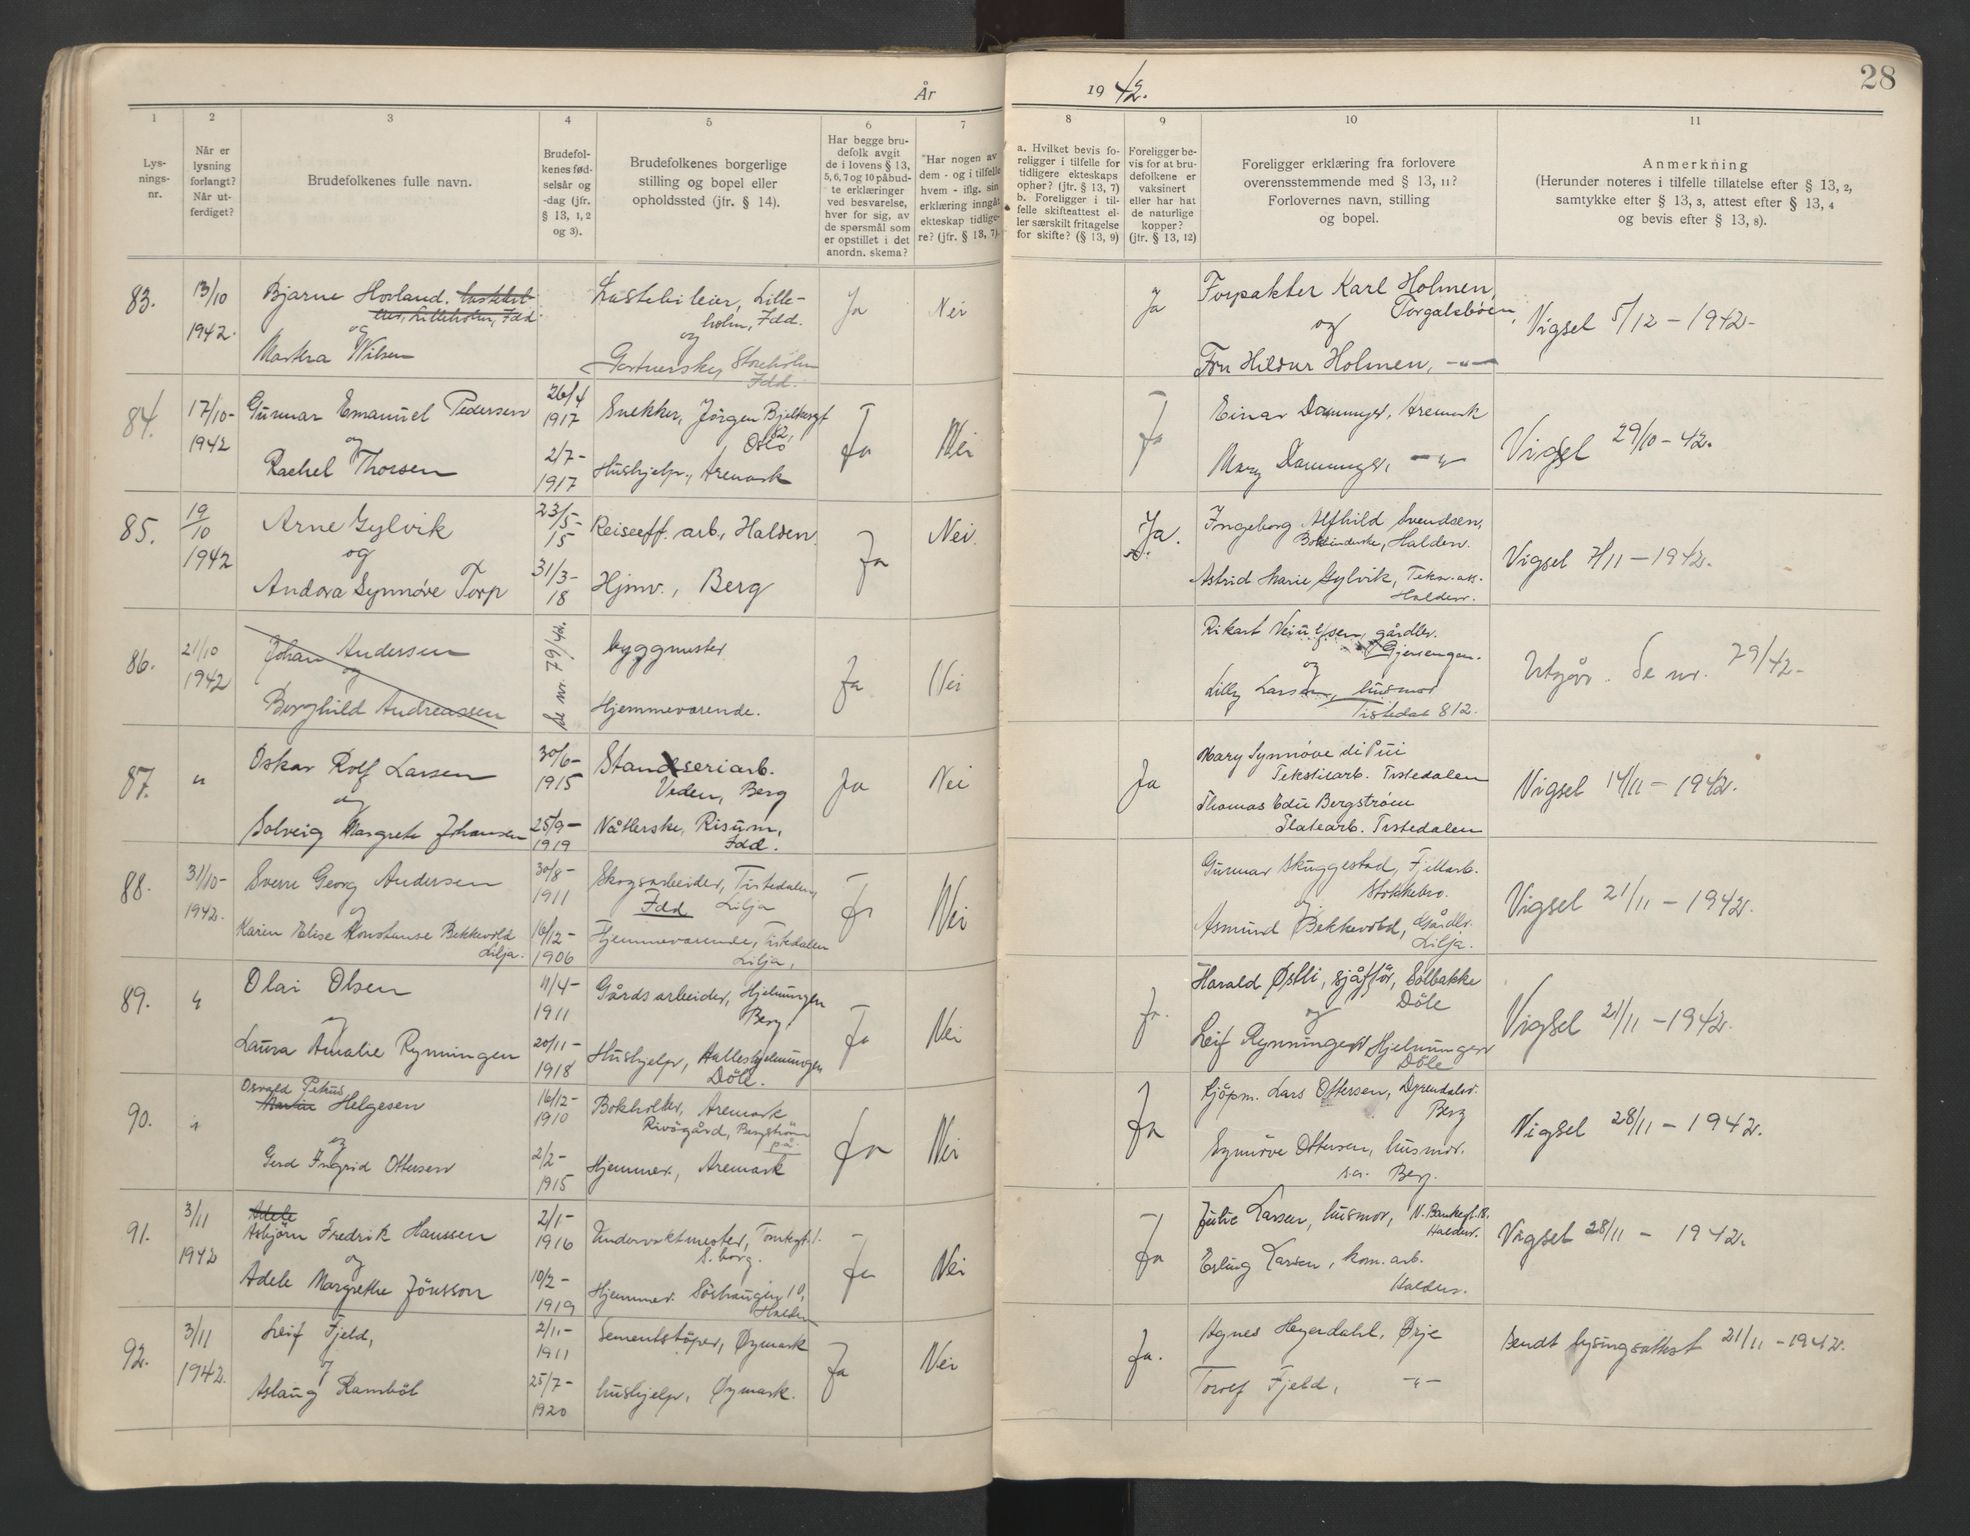 År
19 42.
28
1
2
3
4
5
6
7
8
9
10
11
Lys-
nings-
nr.
Når er
lysning
forlangt?
Når ut-
ferdiget?
Brudefolkenes fulle navn.
Brudefol-
kenes fød-
selsår og
-dag (jfr.
§ 13, 1, 2
og 3).
Brudefolkenes borgerlige
stilling og bopel eller
opholdssted (jfr. § 14).
Har begge bru-
defolk avgit
de i lovens § 13,
5, 6, 7 og 10 påbud-
te erklæringer
ved besvarelse,
hver for sig, av
de spørsmål som
er opstillet i det
anordn. skema?
Har nogen av
dem - og i tilfelle
hvem - iflg. sin
erklæring inngåt
ekteskap tidlige-
re? (jfr. § 13, 7).
a. Hvilket bevis fo-
religger i tilfelle for
tidligere ekteskaps
ophør? (jfr. § 13, 7)
b. Foreligger i til-
felle skifteattest el-
ler særskilt fritagelse
for skifte? (§ 13, 9)
Foreligger be-
vis for at bru-
defolkene er
vaksinert
eller har hat
de naturlige
kopper?
(jfr. § 13, 12)
Foreligger erklæring fra forlovere
overensstemmende med § 13, 11?
Forlovernes navn, stilling
og bopel.
Anmerkning
(Herunder noteres i tilfelle tillatelse efter § 13, 2,
samtykke efter § 13, 3, attest efter § 13, 4
og bevis efter § 13, 8).
83.
13/10
1942.
Bjarne Hovland.
Lilleholm, Idd.
og
Martha Nilsen
Lastebileier, Lille-
holm, Idd.
og
Storeholm
Idd.
Ja
Nei
Ja
Forpakter Karl Holmen,
Torgalsbøen,
og
Fru Hildur Holmen, -"-
Vigsel 5/12 - 1942-
84.
17/10-
1942
Gunnar Emanuel Pedersen
og
Rachel Thorsen
26/4
1917
2/7-
1917
Snekker, Jørgen Bjelkesgt
82,
Oslo
Hushjelp., Aremark
Ja
Nei
Ja
Einar Dammyr, Aremark
Mary Dammyr, -"-
Vigsel 29/10-42.
85.
19
/10
1942
Arne Gylvik
og
Andora Synnøve Torp
23/5-
15
31/3-
18
Reiseeff. arb., Halden.
Hjmv., Berg
Ja
Nei.
Ja.
Ingeborg Alfhild Svendsen,
Halden.
Astrid Marie Gylvik,
Halden.
Vigsel 7/11 - 1942.
86.
21/10
1942
Johan Andersen
og
Borghild Andreassen
se nr. 79/42.
byggmester
Hjemmeværende.
Ja
Nei
Rikart gårdbr.
Gjerrengen.
og
Lilly Larsen, husmor
Tistedal 812.
Utgår. Se nr. 79/42-
87.
"
Oskar Rolf Larsen
og
Solveig Margrete Johansen
30/6-
1915
25/9-
1919
Standseriarb.
Veden, Berg
Nåtlerske, Risum,
Idd.
Ja
Nei
Ja
Mary Synnøve di Pui
Tekstilarb. Tistedalen
Thomas Edu Bergstrøm
Platearb. Tistedalen
Vigsel 14/11 - 1942.
88.
31/10-
1942.
Sverre Georg Andersen
og
Karen Elise Konstanse Bekkevold
Lilja.
30/8-
1911
16/12-
1906
Skogsarbeider, Tistedalen,
Idd Lilja
Hjemmeværende, Tistedalen
Lilja,
Ja
Nei
Gunnar Skuggestad, Fjellarb.
Stokkebro.
og
Asmund Bekkevold, Gårdbr.
Lilja.
Vigsel 21/11 - 1942.
89.
"
Olai Olsen
og
Laura Amalie Rynningen
11/4-
1911
20/11-
1918
Gårdsarbeider, Hjelmungen
Berg.
Hushjelp,
Döle.
Ja
Nei
Ja.
Harald Østli, sjåfför, Solbakke
Döle
og
Leif Rynningen Hjelmungen
Döle
Vigsel 21/11 - 1942.
90.
"
Osvald Petrus
Martin Helgesen
og
Gerd Ingrid Ottersen
16/12-
1910
2/2-
1915
Bokholder, Aremark
Bergstrøm
på
Hjemmev., Aremark
Ja
Nei
Ja
Kjöpm. Lars Ottersen,
Berg
Synnöve Ottersen, husmor.
s.a. Berg.
Vigsel 28/11 - 1942.
91.
3/11
1942
Adele
Asbjörn Fredrik Hanssen
og
Adele Margrethe Jönsson
2/1-
1916
10/2-
1919
Undervaktmester, Tomtegt. 1.
S.borg.
Hjemmev. Sörhaugen 10,
Halden
Ja
Nei
Ja
Julie Larsen, husmor, N. Bankegt. 18.
Halden.
Erling Larsen, kom. arb.
Halden.
Vigsel 28/11 - 1942.
92.
3/11
1942.
Leif Fjeld,
og
Aslaug Ramböl
2/11-
1911
25/7-
1920
Sementstöper, Øymark
hushjelp, Øymark.
Ja
Nei
Ja.
Agnes Heyerdahl, Ørje
Torolf Fjeld, -"-
Sendt lysingsattest 21/11 - 1942.